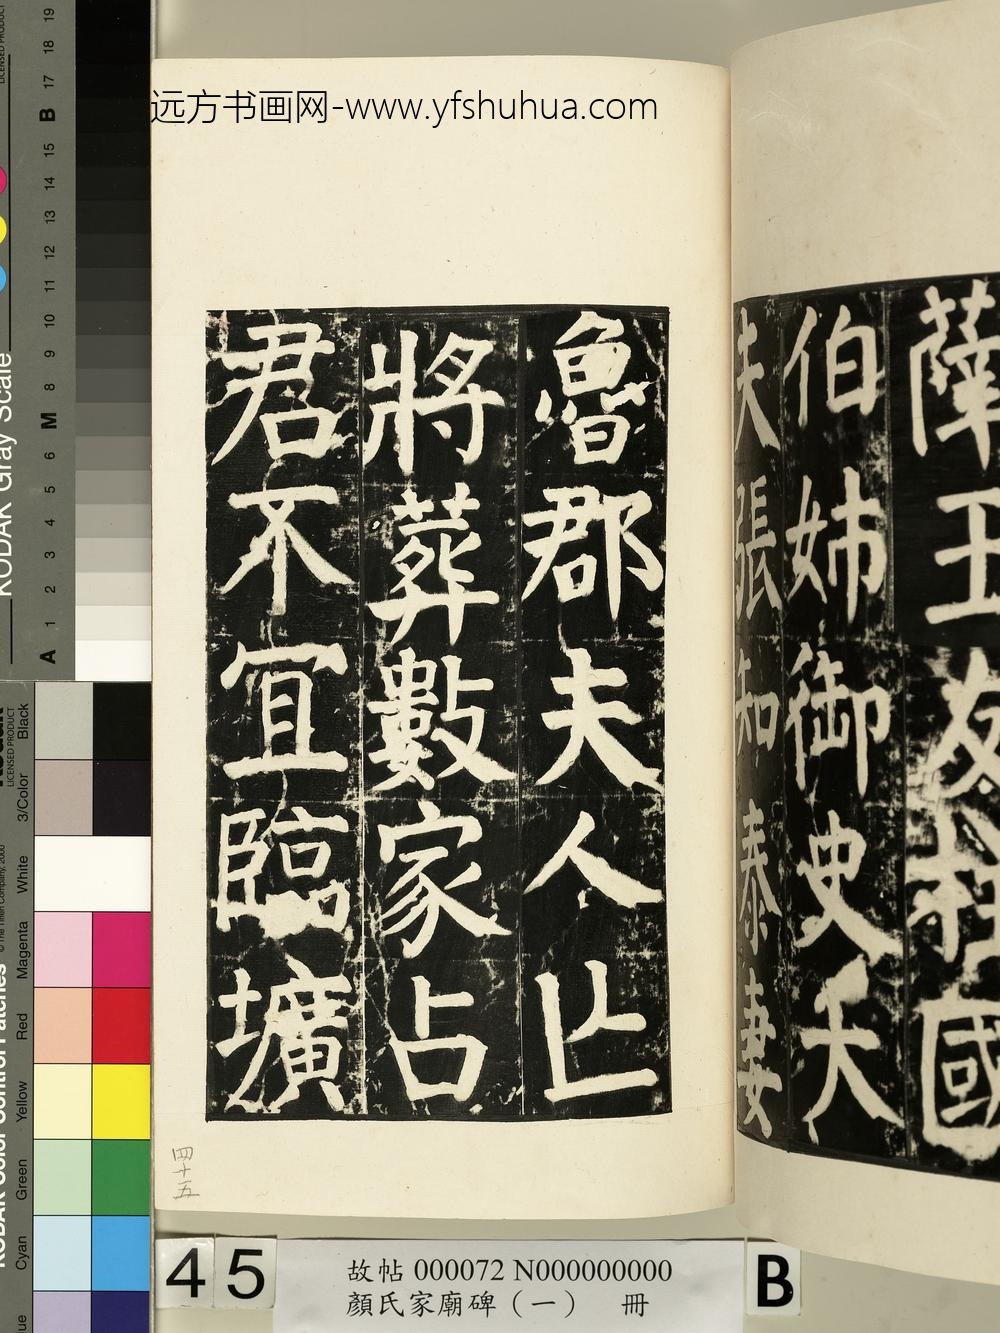 远方书画网-www.yfshuhua.com
薛王友柱國
伯姊御史大
夫張知泰妻
魯郡夫人亡
將葬數家占
君不宜臨壙
四十五
45
B
故帖 000072 N000000000
顏氏家廟碑（一） 冊
KODAK Gray Scale
LICENSED PRODUCT
A 1 2 3 4 5 6 M 8 9 10 11 12 13 14 15 B 17 18 19
KODAK Color Control Patches
© The Tiffen Company, 2000
LICENSED PRODUCT
Cyan
Green
Yellow
Red
Magenta
White
3/Color
Black